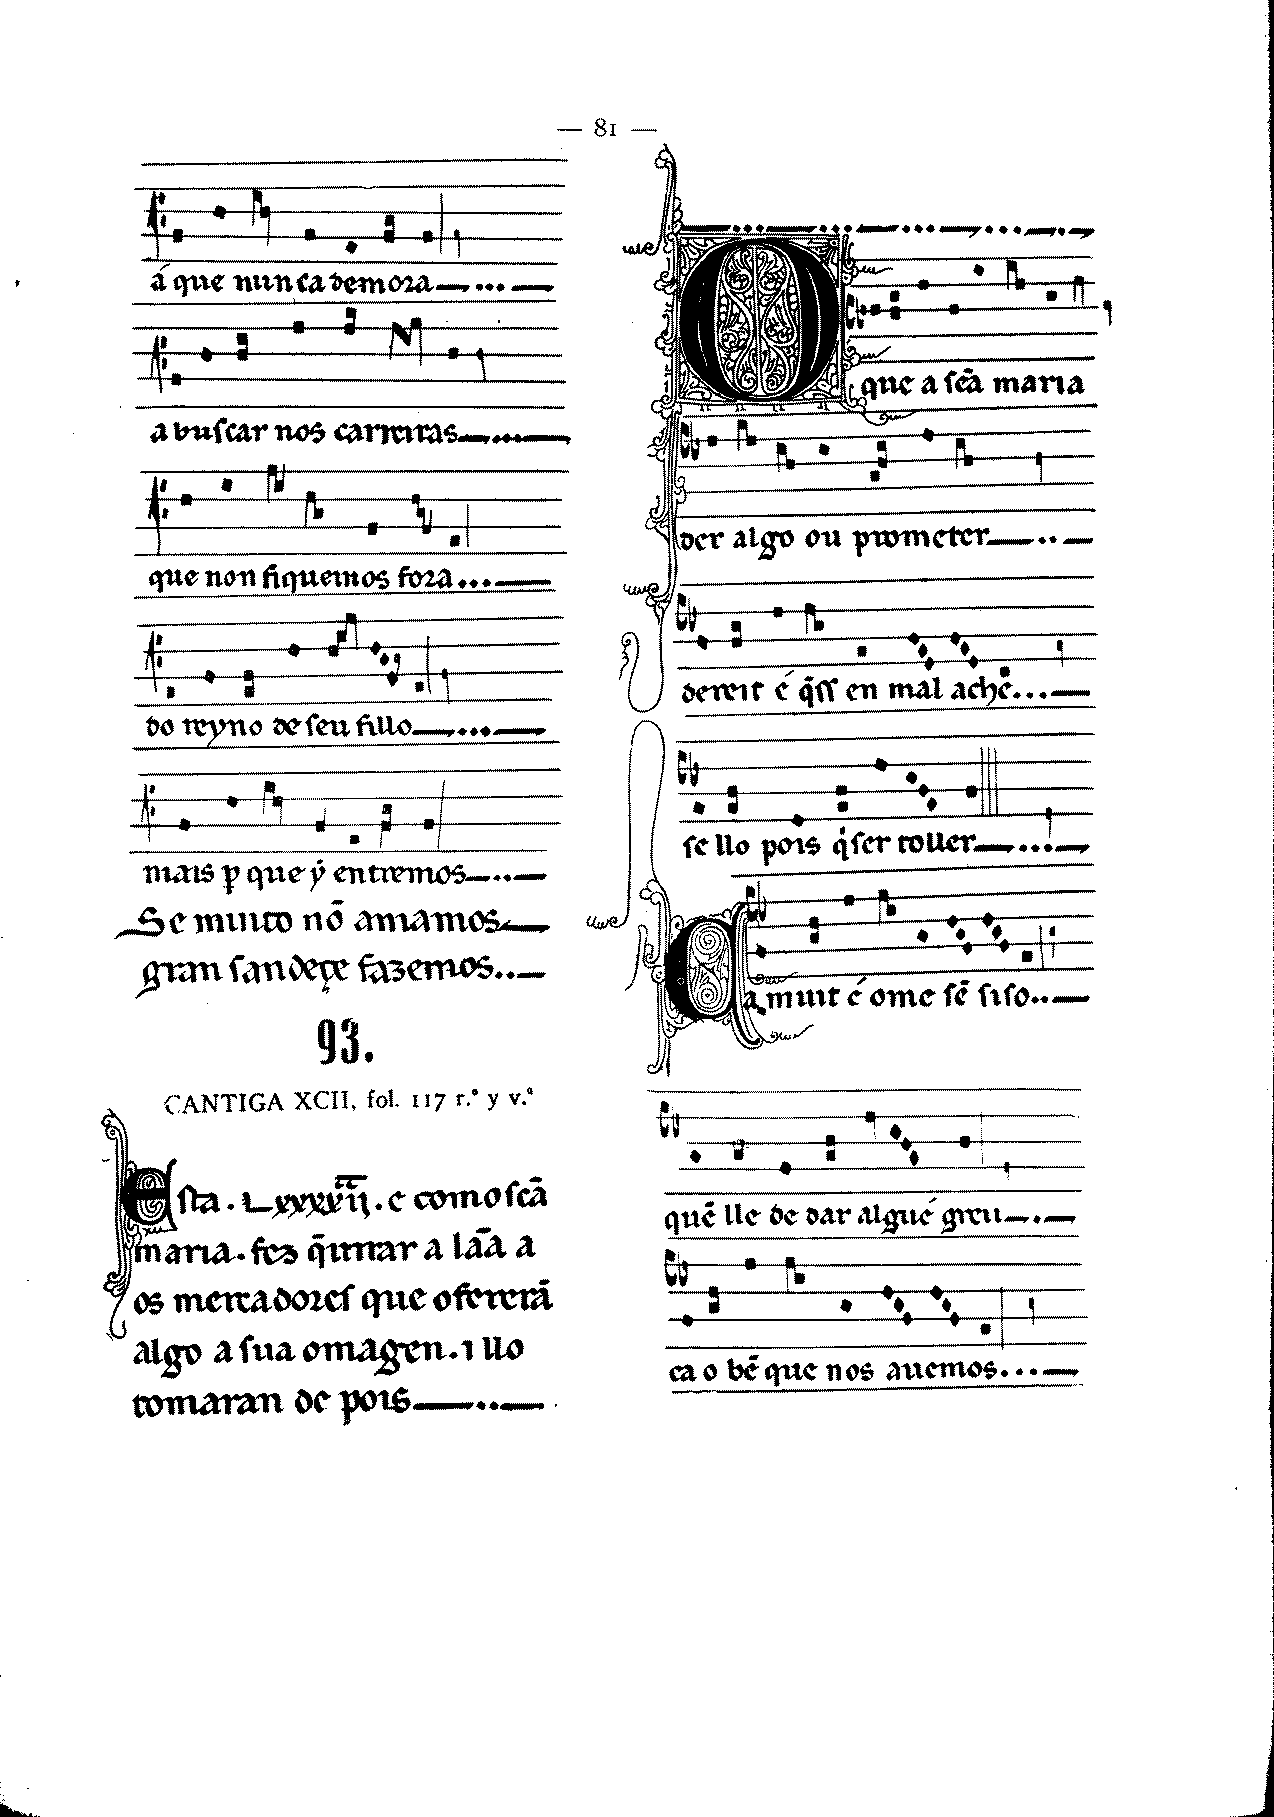 — 81 —
á que nunca demora
a buscar nos carreiras
que non fiquemos fora
do reyno de seu fillo
mais ꝑ que ẏ entremos
Se muito nō amamos
gran sandeçe fazemos
93.
CANTIGA XCII, fol. 117 r.º y v.º
Esta . Lxxxxii . e como scā
maria . fez
a os mercadores queofererā
algo a sua omagen . i llo
tomaran de pois
O que a scā maria
der algo ou prometer
dereit é q̄ss en mal achē
se llo pois q'ser toller
Ca muit é ome sē siso
quē lle de dar algué greu
ca o bē que nos auemos